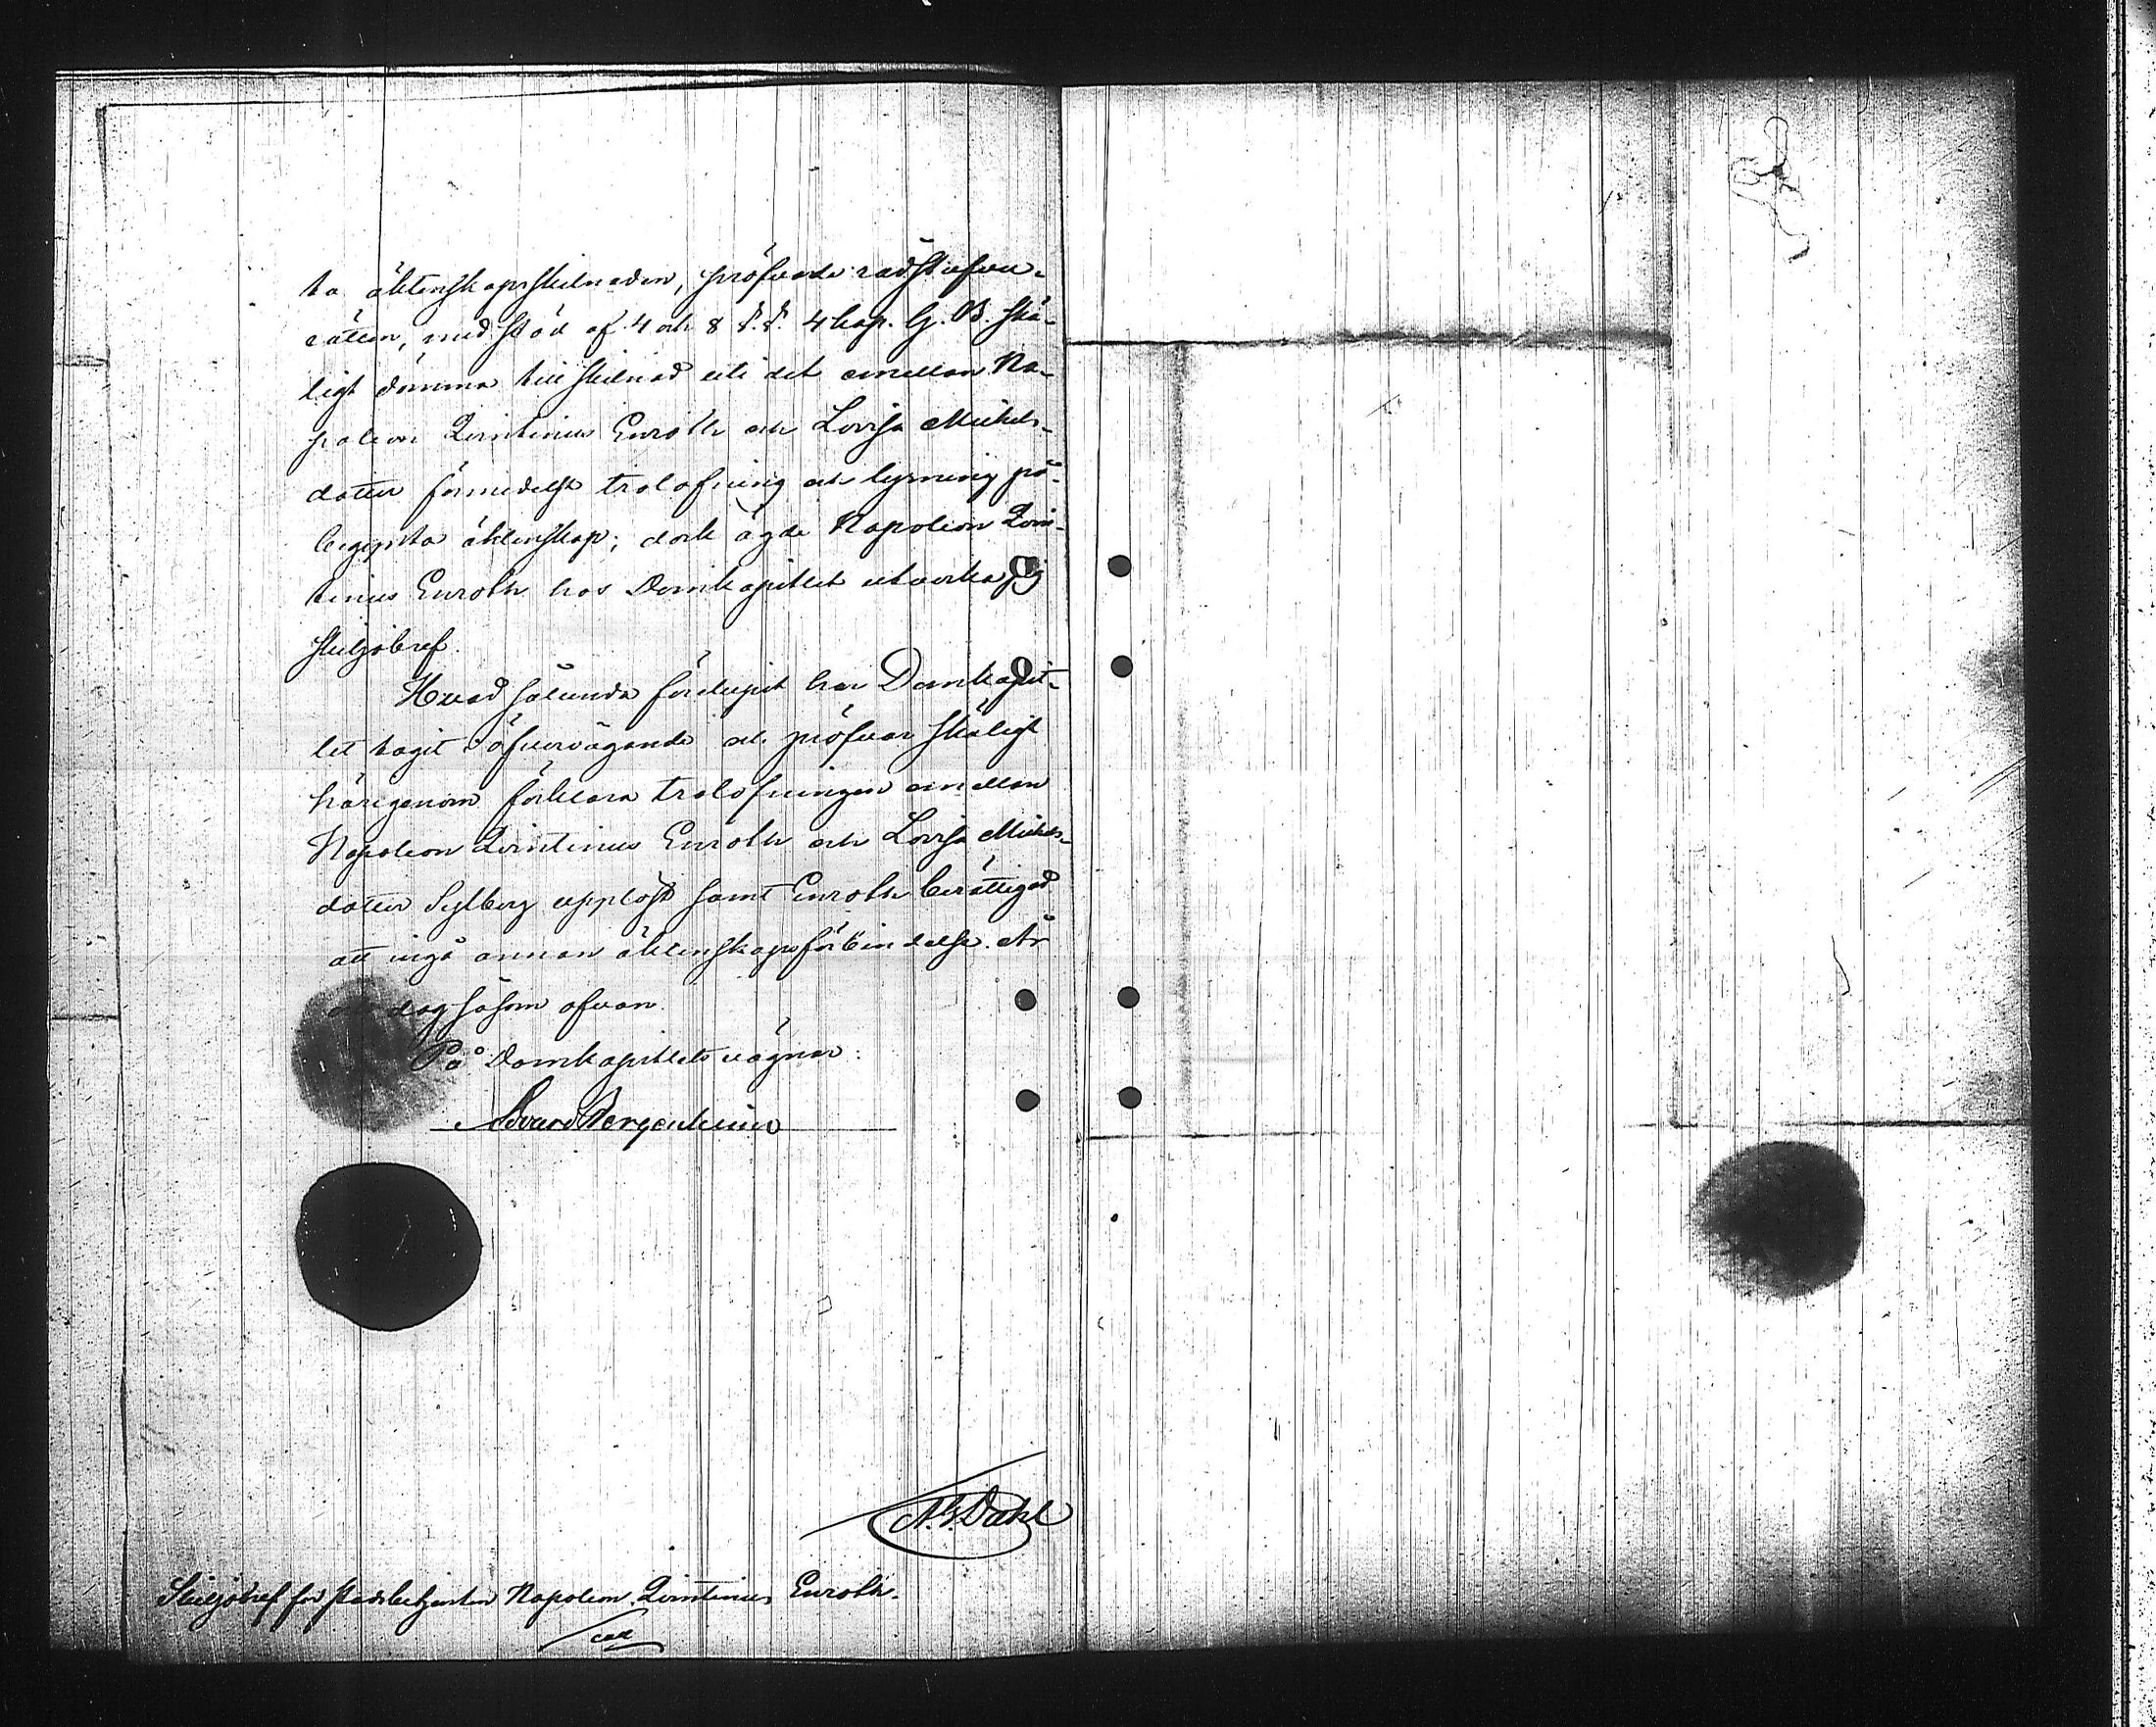 ta äktenskapsskilnaden, pröfvade rådstufvu-
rätten, med stöd af 4 och 8 §.§. 4 kap. G. B. skä-
ligt dömma till skilnad uti det emellan Na-
poleon Qvintinius Enroth och Lovisa Mickels-
dotter förmedelst trolofning och lysning på-
begynta äktenskap; dock ägde Napoleon Qvin-
tinius Enroth hos Domkapitlet utverka sig
skiljobref.
Hvad sålunda förelupit har Domkapit-
let tagit i öfvervägande och pröfvar skäligt
härigenom förklara trolofningen emellan
Napoleon Qvintinius Enroth och Lovisa Mickels-
dotter Sylberg upplöst samt Enroth berättigad
att ingå annan äktenskapsförbindelse. År
och dag såsom ofvan.
På Domkapitlets vägnar:
Edvard Bergenheim
A. G. Dahl
Skiljobref för stadsbetjenten Napoleon Qvintinius Enroth.